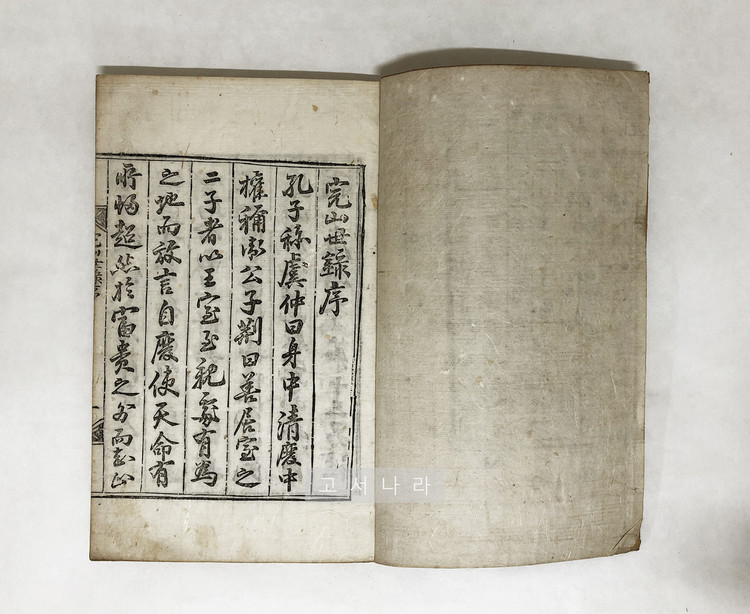 完山世錄序
孔子称虞仲曰身中清廢中
權稱衛公子荊曰善居室之
二子者以王室至親處有爲
之地而放言自廢使天命有
所歸超然於富贵之外而止
고서나라